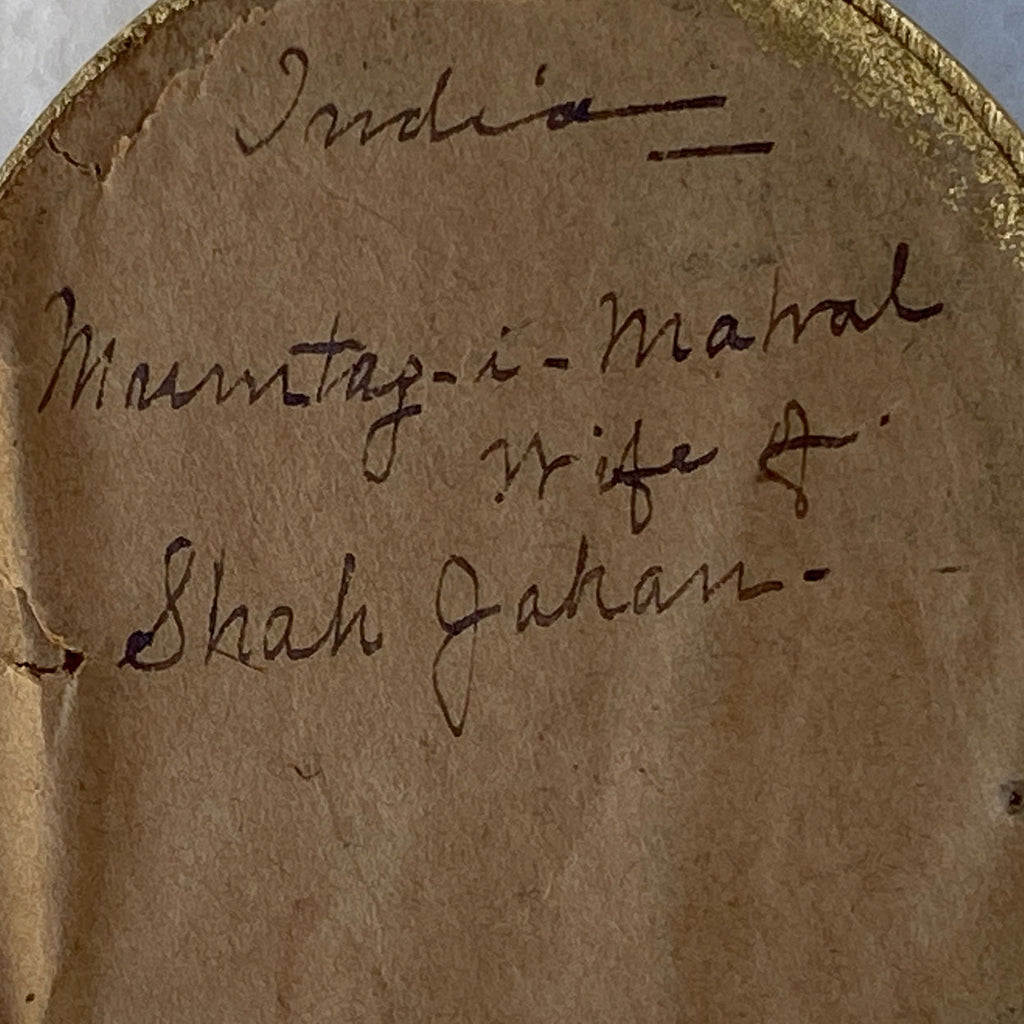 India
Mumtaz-i-Mahal
Wife of
Shah Jahan-